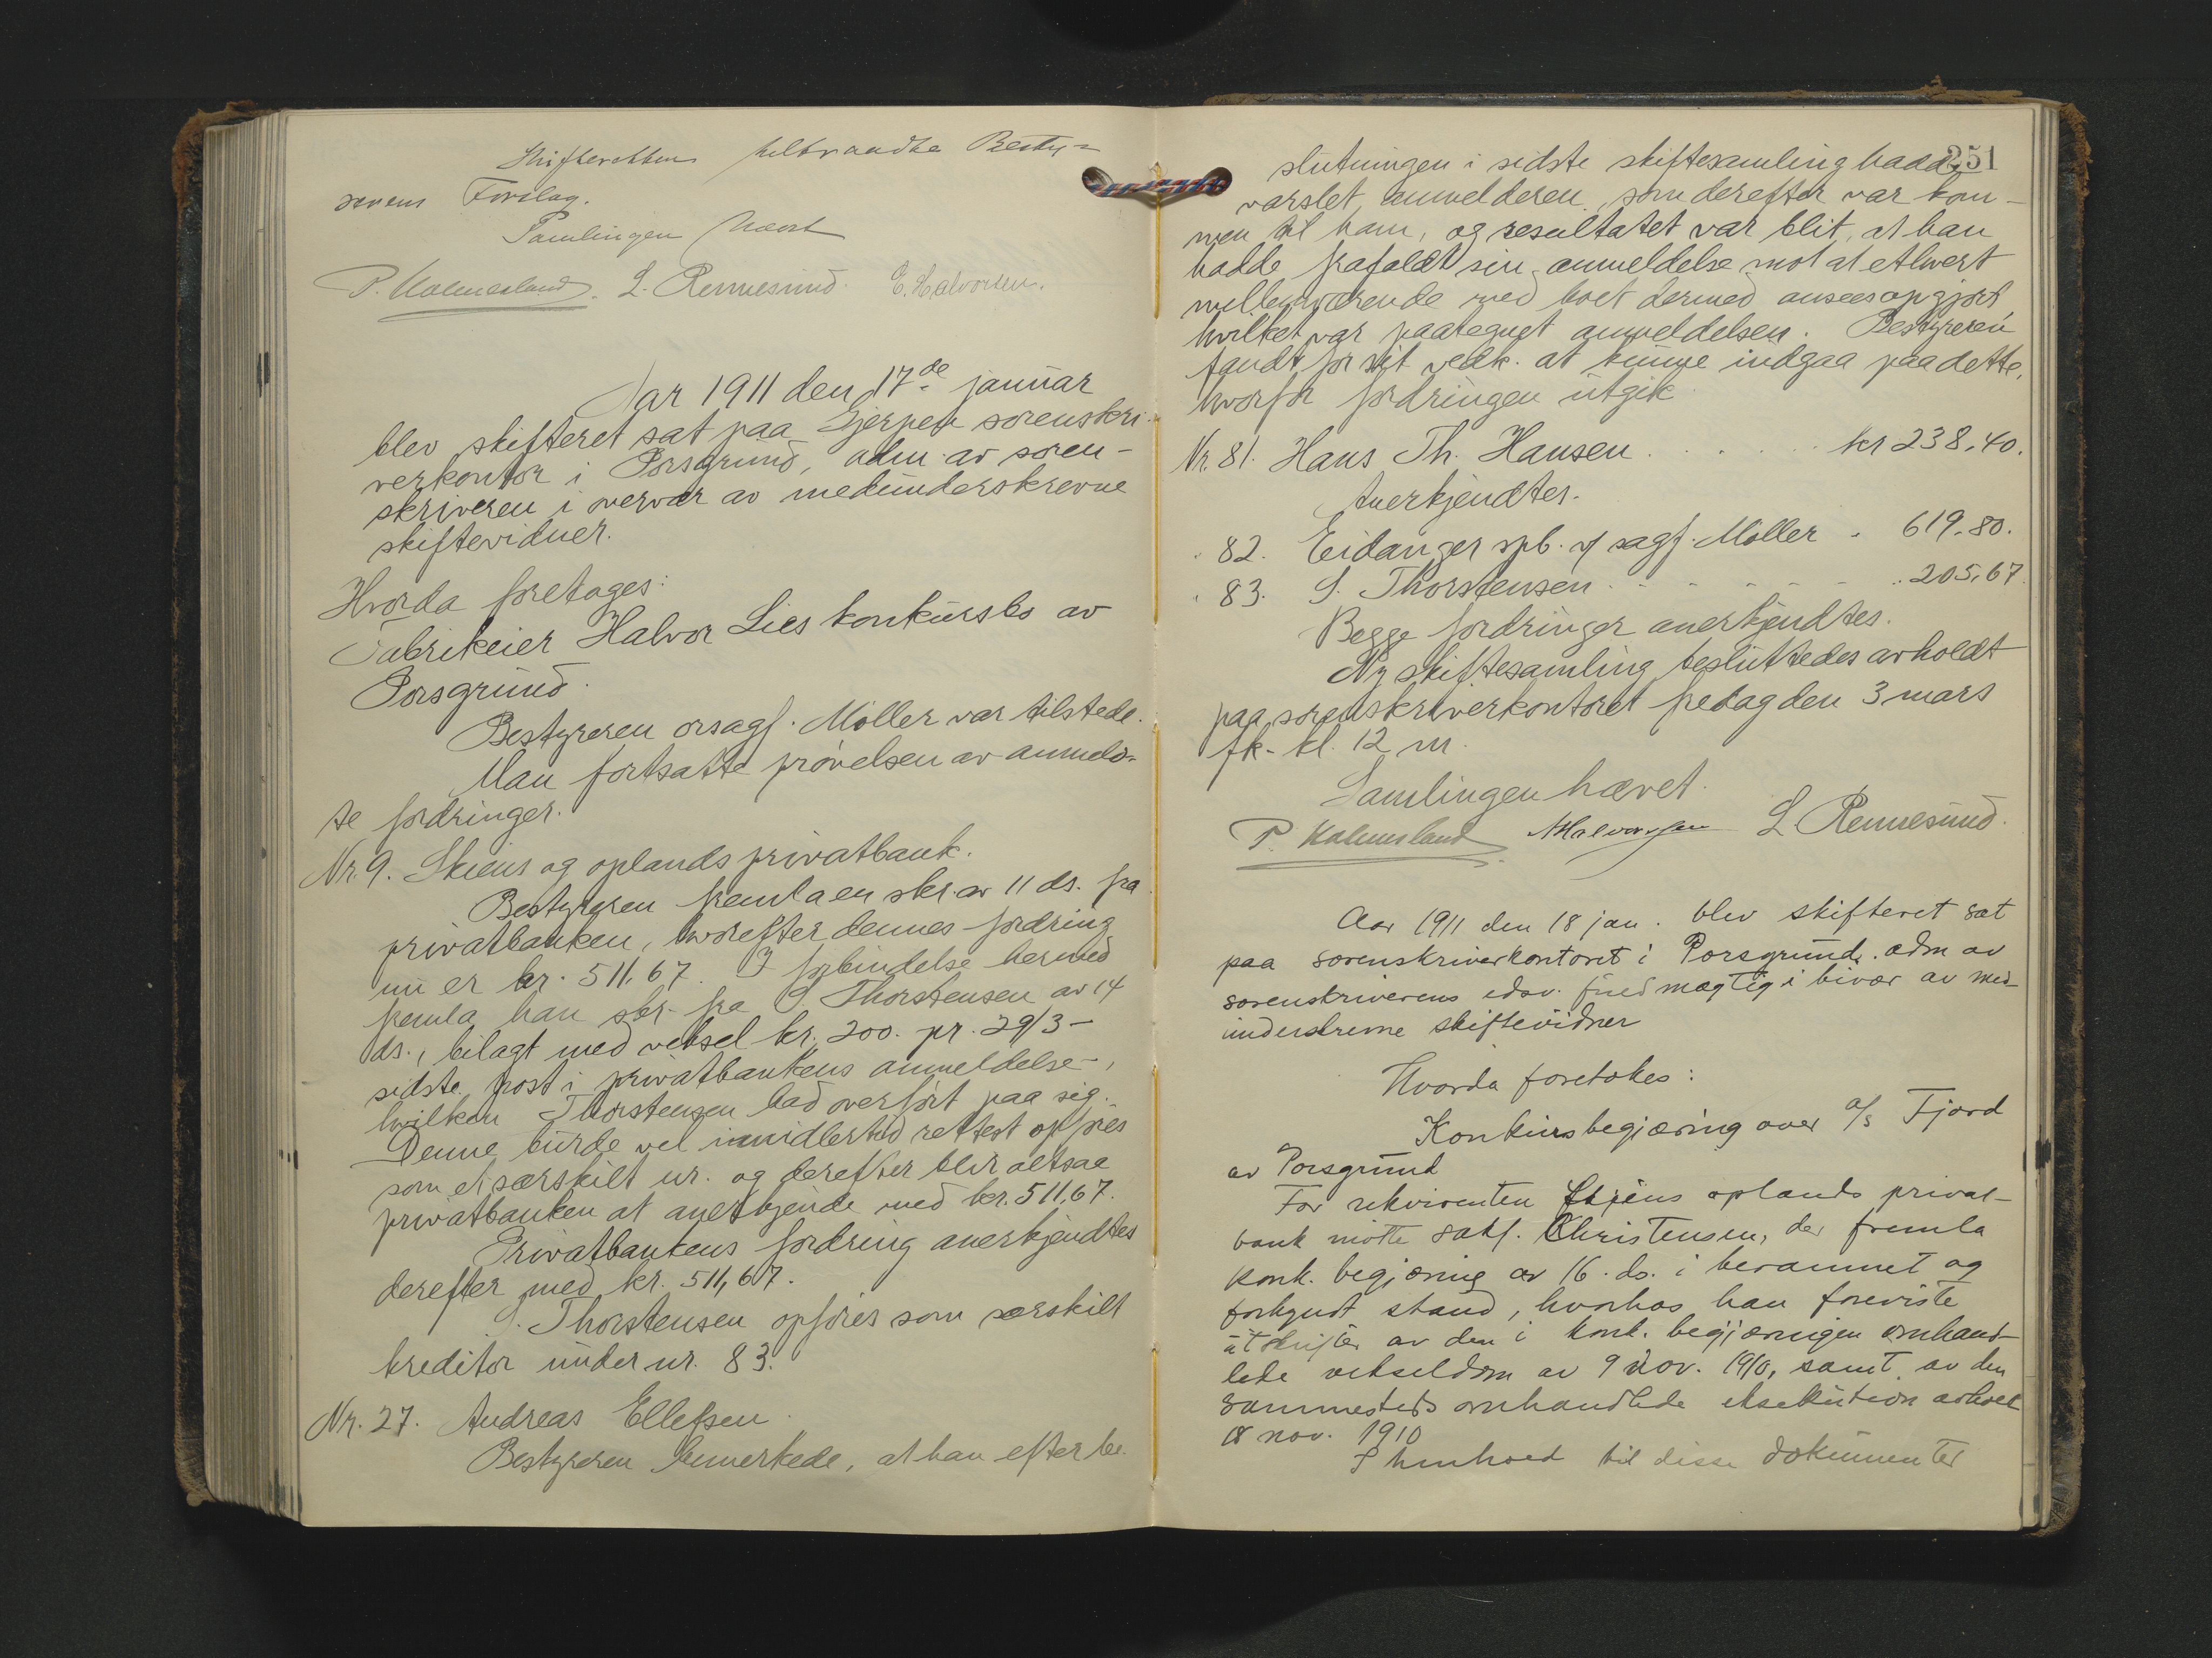 Skifteretten tiltraadte Besty-
rerens Forslag.
Samlingen hævet
P. Kolmesland. L. Rennesund. E. Halvorsen.
Aar 1911 den 17de januar
blev skifteret sat paa Gjerpen sorenskri-
verkontor i Porsgrund, adm. av soren-
skriveren i overvær av medunderskrevne
skiftevidner.
Hvorda foretages:
Fabrikeier Halvor Lies konkursbo av
Porsgrund.
Bestyreren orsagf. Møller var tilstede.
Man fortsatte prøvelsen av anmeld-
te fordringer.
Nr. 9. Skiens og oplands privatbank.
Bestyreren fremla en skr. av 11 ds. fra
privatbanken, hvorefter dennes fordring
nu er kr. 511,67. I forbindelse hermed
fremla han skr. fra S. Thorstensen av 14
ds., bilagt med veksel kr. 200. pr. 29/3 -
sidste post i privatbankens anmeldelse -,
hvilken Thorstensen bad overført paa sig.
Denne burde vel imidlertid rettest opføres
som et særskilt nr. og derefter blir altsaa
privatbanken at anerkjende med kr. 511,67.
Privatbankens fordring anerkjendtes
derefter med kr. 511,67.
S. Thorstensen opføres som særskilt
kreditor under nr. 83.
Nr. 27. Andreas Ellefsen.
Bestyreren bemerkede, at han efter be-
251
slutningen i sidste skiftesamling hadde
varslet anmelderen, som derefter var kom-
men til ham, og resultatet var blit, at han
hadde frafaldt sin anmeldelse mot at ethvert
mellemværende med boet dermed ansees opgjort
hvilket var paategnet anmeldelsen. Bestyreren
fandt for sit vedk. at kunne indgaa paa dette,
hvorfor fordringen utgik.
Nr. 81. Hans Th. Hansen . . . . . . kr 238,40.
Anerkjendtes.
" 82. Eidanger spb. v/ sagf. Møller " 619,80.
" 83. S. Thorstensen . . . . . . " 205,67.
Begge fordringer anerkjendtes.
Ny skiftesamling besluttedes avholdt
paa sorenskriverkontoret fredag den 3 mars
fk. kl. 12 m.
Samlingen hævet.
P. Kolmesland NHalvorsen L. Rennesund.
Aar 1911 den 18 jan. blev skifteret sat
paa sorenskriverkontoret i Porsgrund, adm av
sorenskriverens edsv. fuldmægtig i bivær av med-
underskrevne skiftevidner
Hvorda foretokes:
Konkursbegjæring over a/s Fjord
av Porsgrund
For rekvirenten Skiens oplands privat-
bank møtte sakf. Christensen, der fremla
konk. begjæring av 16. ds. i berammet og
forkyndt stand, hvorhos han foreviste
utskrifter av den i konk. begjæringen omhand-
lede vekseldom av 9 nov. 1910, samt av den
sammesteds omhandlede eksekution avholdt
18 nov. 1910
I henhold til disse dokumenter